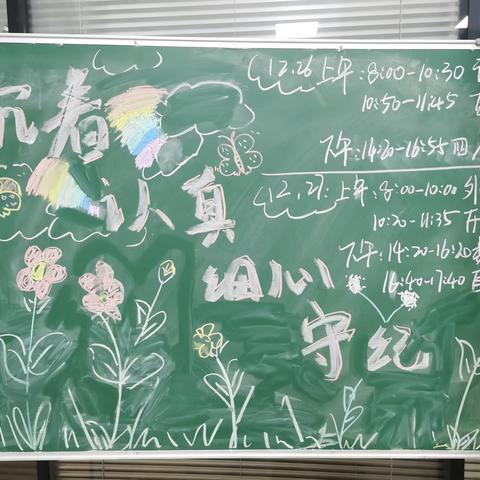 沉着
认真
细心
守纪
12.26 上午:8:00-10:30
10:50-11:45
下午:14:20-16:55
12.27: 上午:8:00-10:00
10:20-11:35
下午:14:20-16:20
16:40-17:40